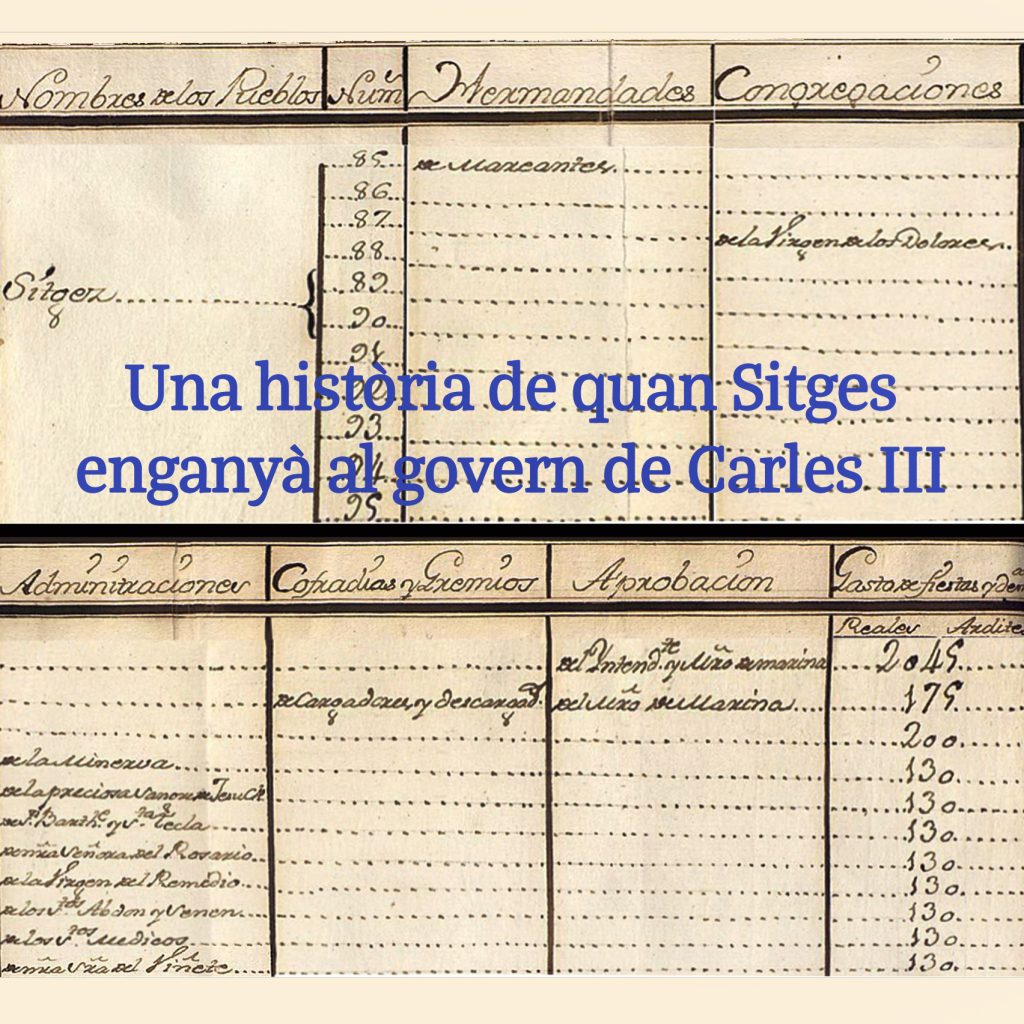 Nombres de los Pueblos Num Hermandades Congregaciones
85 de Mareantes
86
87 de la Virgen de los Dolores
88
Sitges 89
90
91
93
94
95
Una història de quan Sitges
enganyà al govern de Carles III
Adminitraciones Cofradias y Gremios Aprobacion Gasto de fiestas y
Reales Ardite
del Yntend.te y Mtro de marina 2045
de Cargadores y descargad. del Mro de Marina 175
200
de la Minerva 130
de la preciosa Sangre de 130
de S.n Barth.e y S.ta Tecla 130
de nra Señora del Rosario 130
de la Virgen del Remedio 130
de los S.tos Abdon y Senen 130
de los S.tos Medicos 130
de nra Sra del Viñete 130